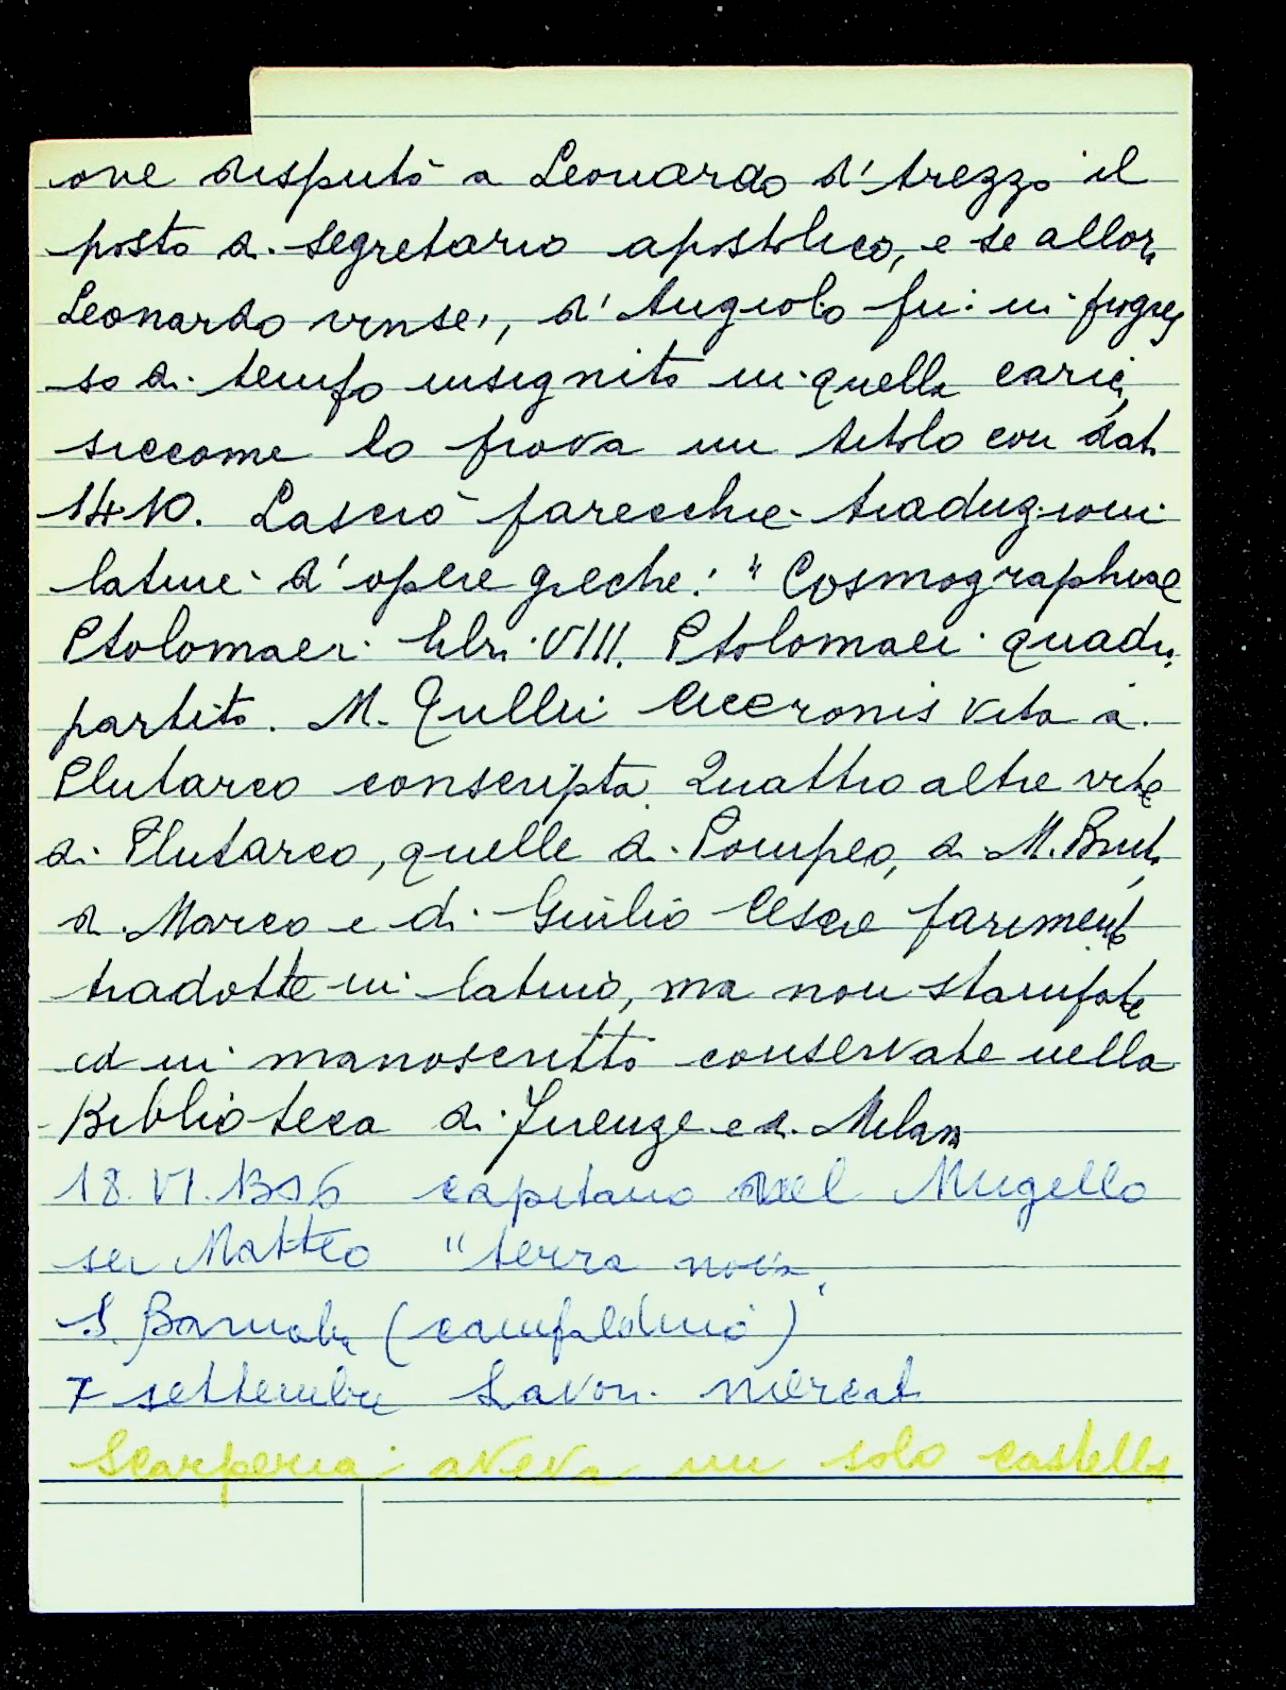 ove disputò a Leonardo d'Arezzo il
posto di segretario apostolico, e se allora
Leonardo vinse, d'Angiolo fu in progres
so di tempo insignito in quella carica,
siccome lo prova un titolo con data
1410. Lasciò parecchie traduzioni
latine d'opere greche: "Cosmographiae
Ptolomaei libri VIII. Ptolomaei quadri
partito. M. Tullii Ciceronis vita a
Plutarco conscripta. Quattro altre vite
di Plutarco, quelle di Pompeo, di M. Bruto,
di Marco e di Giulio Cesare parimenti
tradotte in latino, ma non stampate
ed in manoscritto conservate nella
Biblioteca di Firenze e di Milano
18.VI.1306 capitano nel Mugello
ser Matteo "terra nova"
S. Barnaba (campaldino)
7 settembre mercat
Scarperia aveva un solo castello